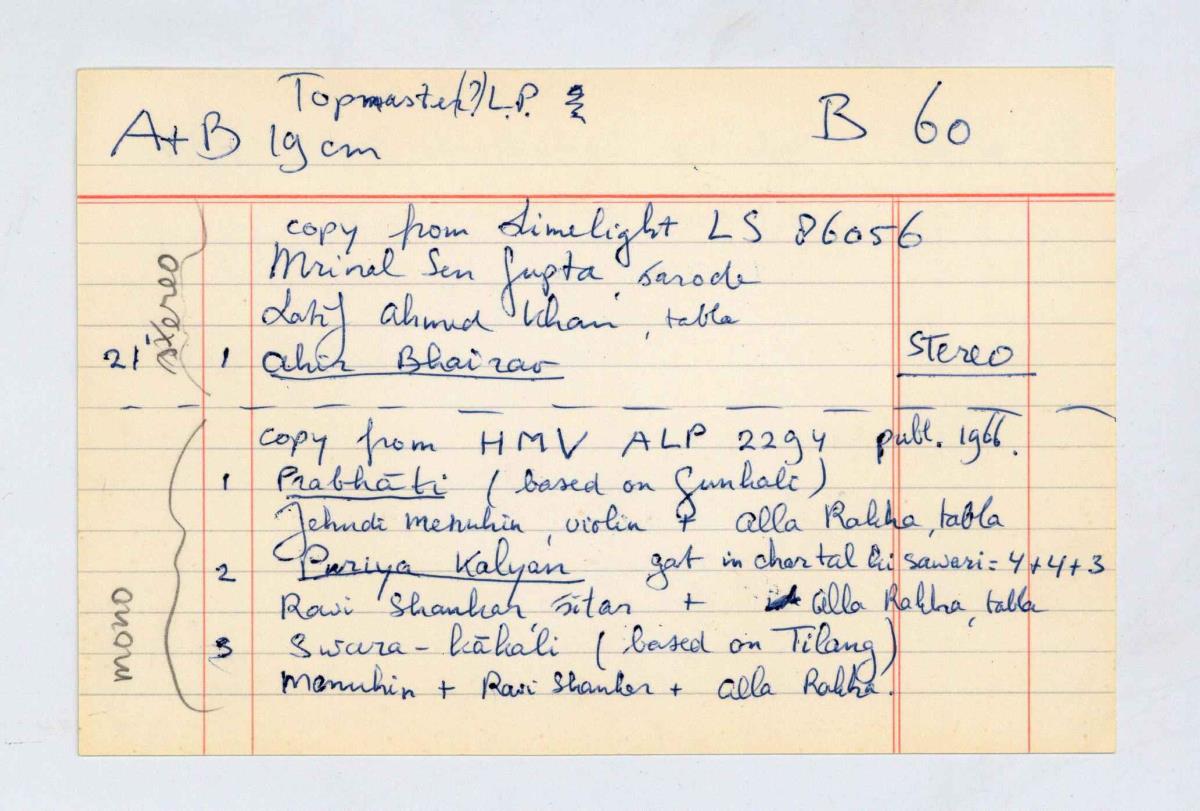 Topmaster(?) L.P.
A+B 19 cm
B 60
copy from Limelight LS 86056
Mrinal Sen Gupta, sarode
Latif Ahmed Khan, tabla
21' 1 Ahir Bhairav
stereo
Stereo
copy from HMV ALP 2294 publ. 1966.
1 Prabhāti (based on Gunkali)
Jehudi Menuhin, violin + Alla Rakha, tabla
2 Puriya Kalyan gat in chartal ki sawari = 4+4+3
Ravi Shankar, sitar + Alla Rakha, tabla
3 Swara-kākāli (based on Tilang)
Menuhin + Ravi Shankar + Alla Rakha.
mono